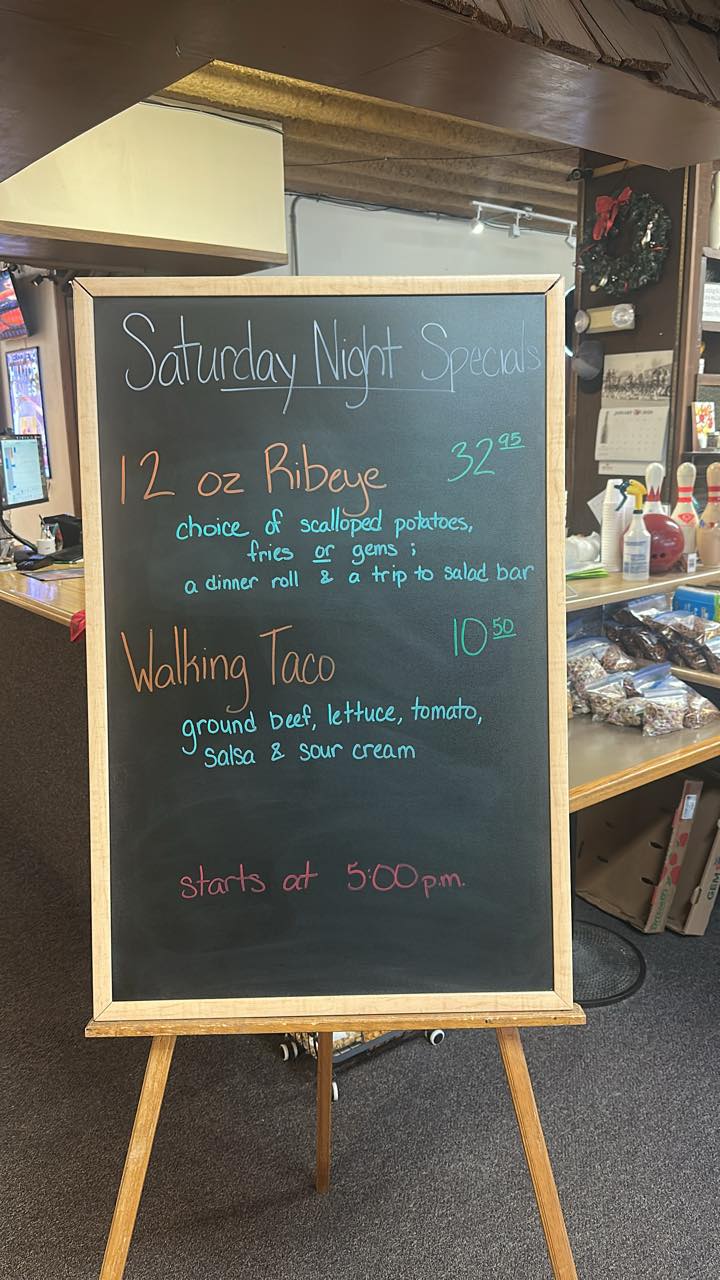 Saturday Night Specials
12 oz Ribeye 32 95
choice of scalloped potatoes,
fries or gems ;
a dinner roll & a trip to salad bar
Walking Taco 10 50
ground beef, lettuce, tomato,
salsa & sour cream
starts at 5:00 p.m.